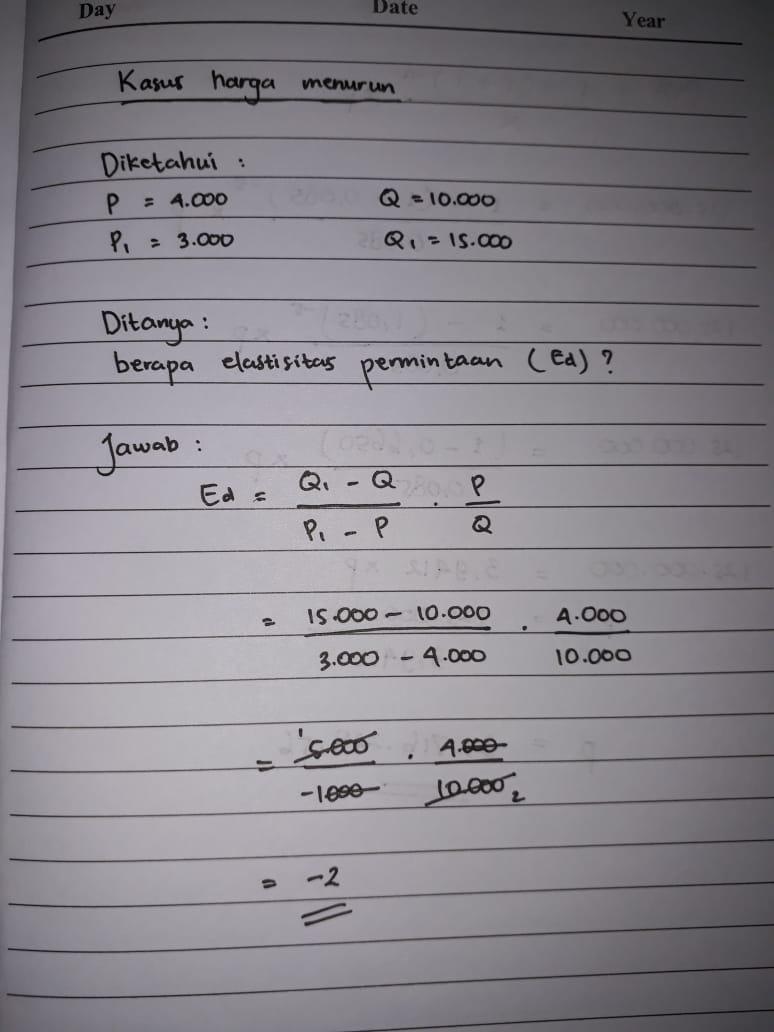 Day Date Year
Kasus harga menurun
Diketahui :
P = 4.000 Q = 10.000
P₁ = 3.000 Q₁ = 15.000
Ditanya :
berapa elastisitas permintaan (Ed) ?
Jawab :
Ed = Q₁ - Q / P₁ - P . P / Q
= 15.000 - 10.000 / 3.000 - 4.000 . 4.000 / 10.000
= ¹5.000 / -1.000 . 4.000 / 10.000 ₂
= -2